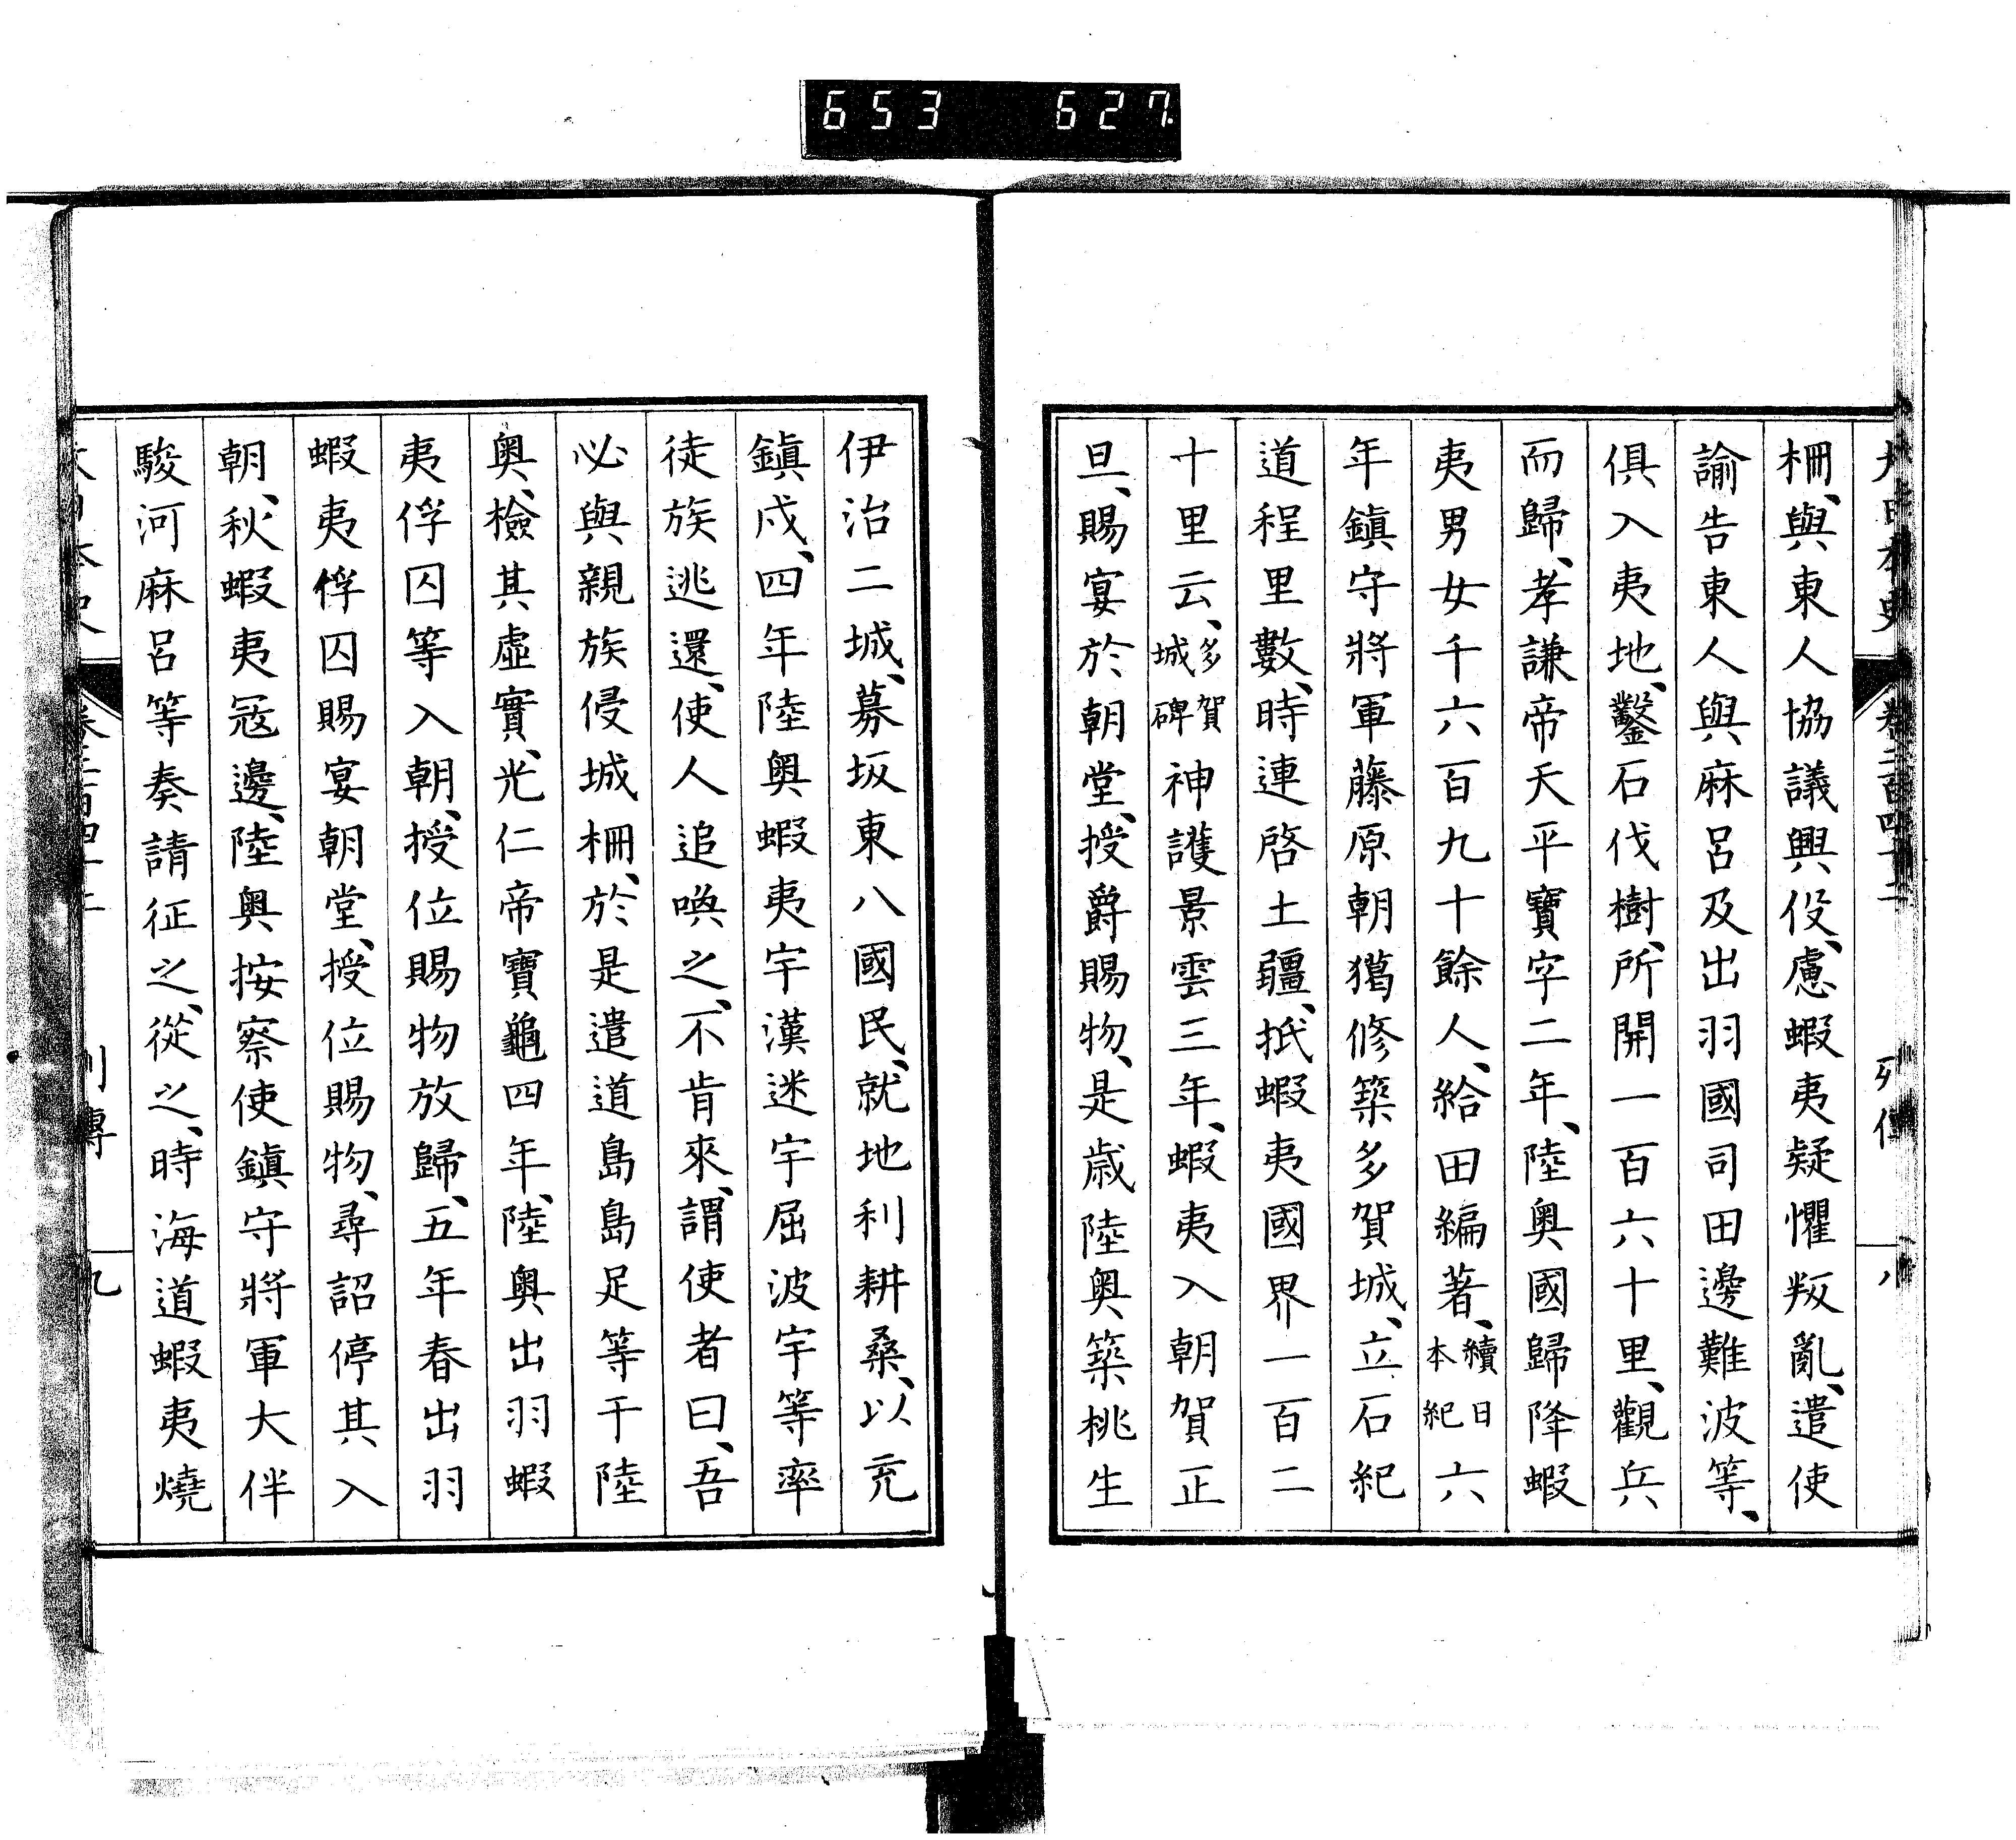 653 627
柵、與東人協議興役、慮蝦夷疑懼叛亂、遣使
諭告東人與麻呂及出羽國司田邊難波等、
俱入夷地、鑿石伐樹、所開一百六十里、觀兵
而歸、孝謙帝天平寶字二年、陸奧國歸降蝦
夷男女千六百九十餘人、給田編著、續日本紀六
年鎮守將軍藤原朝獦修築多賀城、立石紀
道程里數、時連啓土疆、抵蝦夷國界一百二
十里云、多賀城碑神護景雲三年、蝦夷入朝賀正
旦、賜宴於朝堂、授爵賜物、是歲陸奧築桃生
伊治二城、募坂東八國民、就地利耕桑、以充
鎭戍、四年陸奧蝦夷宇漢迷宇屈波宇等率
徒族逃還、使人追喚之、不肯來、謂使者曰、吾
必與親族侵城柵、於是遣道島島足等于陸
奧、檢其虛實、光仁帝寶龜四年、陸奧出羽蝦
夷俘囚等入朝、授位賜物放歸、五年春出羽
蝦夷俘囚賜宴朝堂、授位賜物、尋詔停其入
朝、秋蝦夷寇邊、陸奧按察使鎭守將軍大伴
駿河麻呂等奏請征之、從之、時海道蝦夷燒